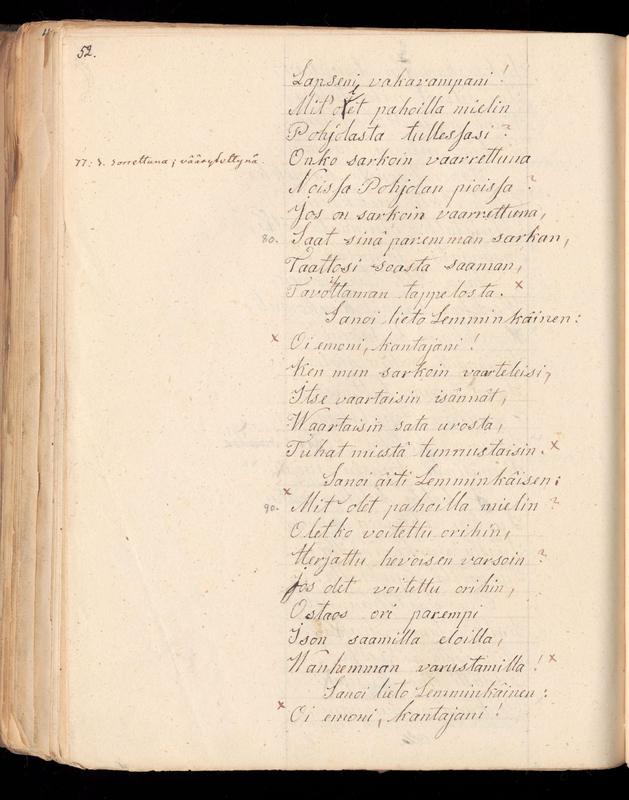 52.
Lapseni, vakavampani!
Mit' olet pahoilla mielin
Pohjolasta tullessasi?
77: s. sorrettuna; vääryytettynä. Onko sarkoin vaarrettuna
Noissa Pohjolan pioissa?
Jos on sarkoin vaarrettuna,
80. Saat sinä paremman sarkan,
Taattosi soasta saaman,
Tavoittaman tappelosta. ×
Sanoi lieto Lemminkäinen:
× Oi emoni, kantajani!
Ken mun sarkoin vaarteleisi,
Itse vaartaisin isännät,
Waartaisin sata urosta,
Tuhat miestä tunnustaisin. ×
Sanoi äiti Lemminkäisen:
×
90. Mit' olet pahoilla mielin?
Oletko voitettu orihin,
Herjattu hevoisen varsoin?
Jos olet voitettu orihin,
Ostaos ori parempi
Ison saamilla eloilla,
Wanhemman varustamilla! ×
Sanoi lieto Lemminkäinen:
× Oi emoni, kantajani!